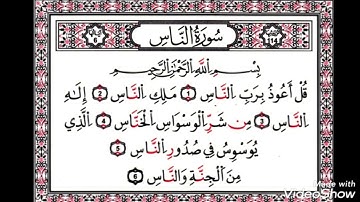 سُورَةُ النَّاسِ
بِسْمِ اللَّهِ الرَّحْمَٰنِ الرَّحِيمِ
قُلْ أَعُوذُ بِرَبِّ النَّاسِ 1 مَلِكِ النَّاسِ 2 إِلَٰهِ
النَّاسِ 3 مِن شَرِّ الْوَسْوَاسِ الْخَنَّاسِ 4 الَّذِي
يُوَسْوِسُ فِي صُدُورِ النَّاسِ 5
مِنَ الْجِنَّةِ وَالنَّاسِ 6
Made with
VideoShow